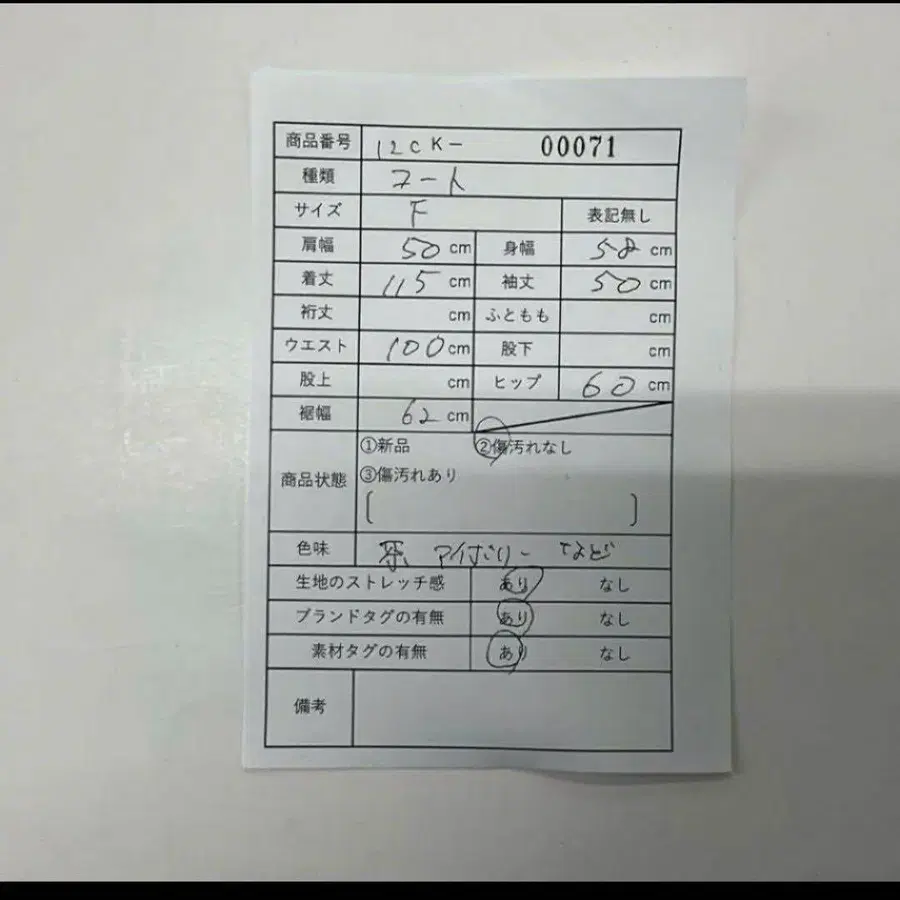 商品番号 12CK- 00071
種類 コート
サイズ F 表記無し
肩幅 50 cm 身幅 58 cm
着丈 115 cm 袖丈 50 cm
裄丈 cm ふともも cm
ウエスト 100 cm 股下 cm
股上 cm ヒップ 60 cm
裾幅 62 cm
商品状態 ①新品 ②傷汚れなし
③傷汚れあり
色味 茶 アイボリー など
生地のストレッチ感 あり なし
ブランドタグの有無 あり なし
素材タグの有無 あり なし
備考